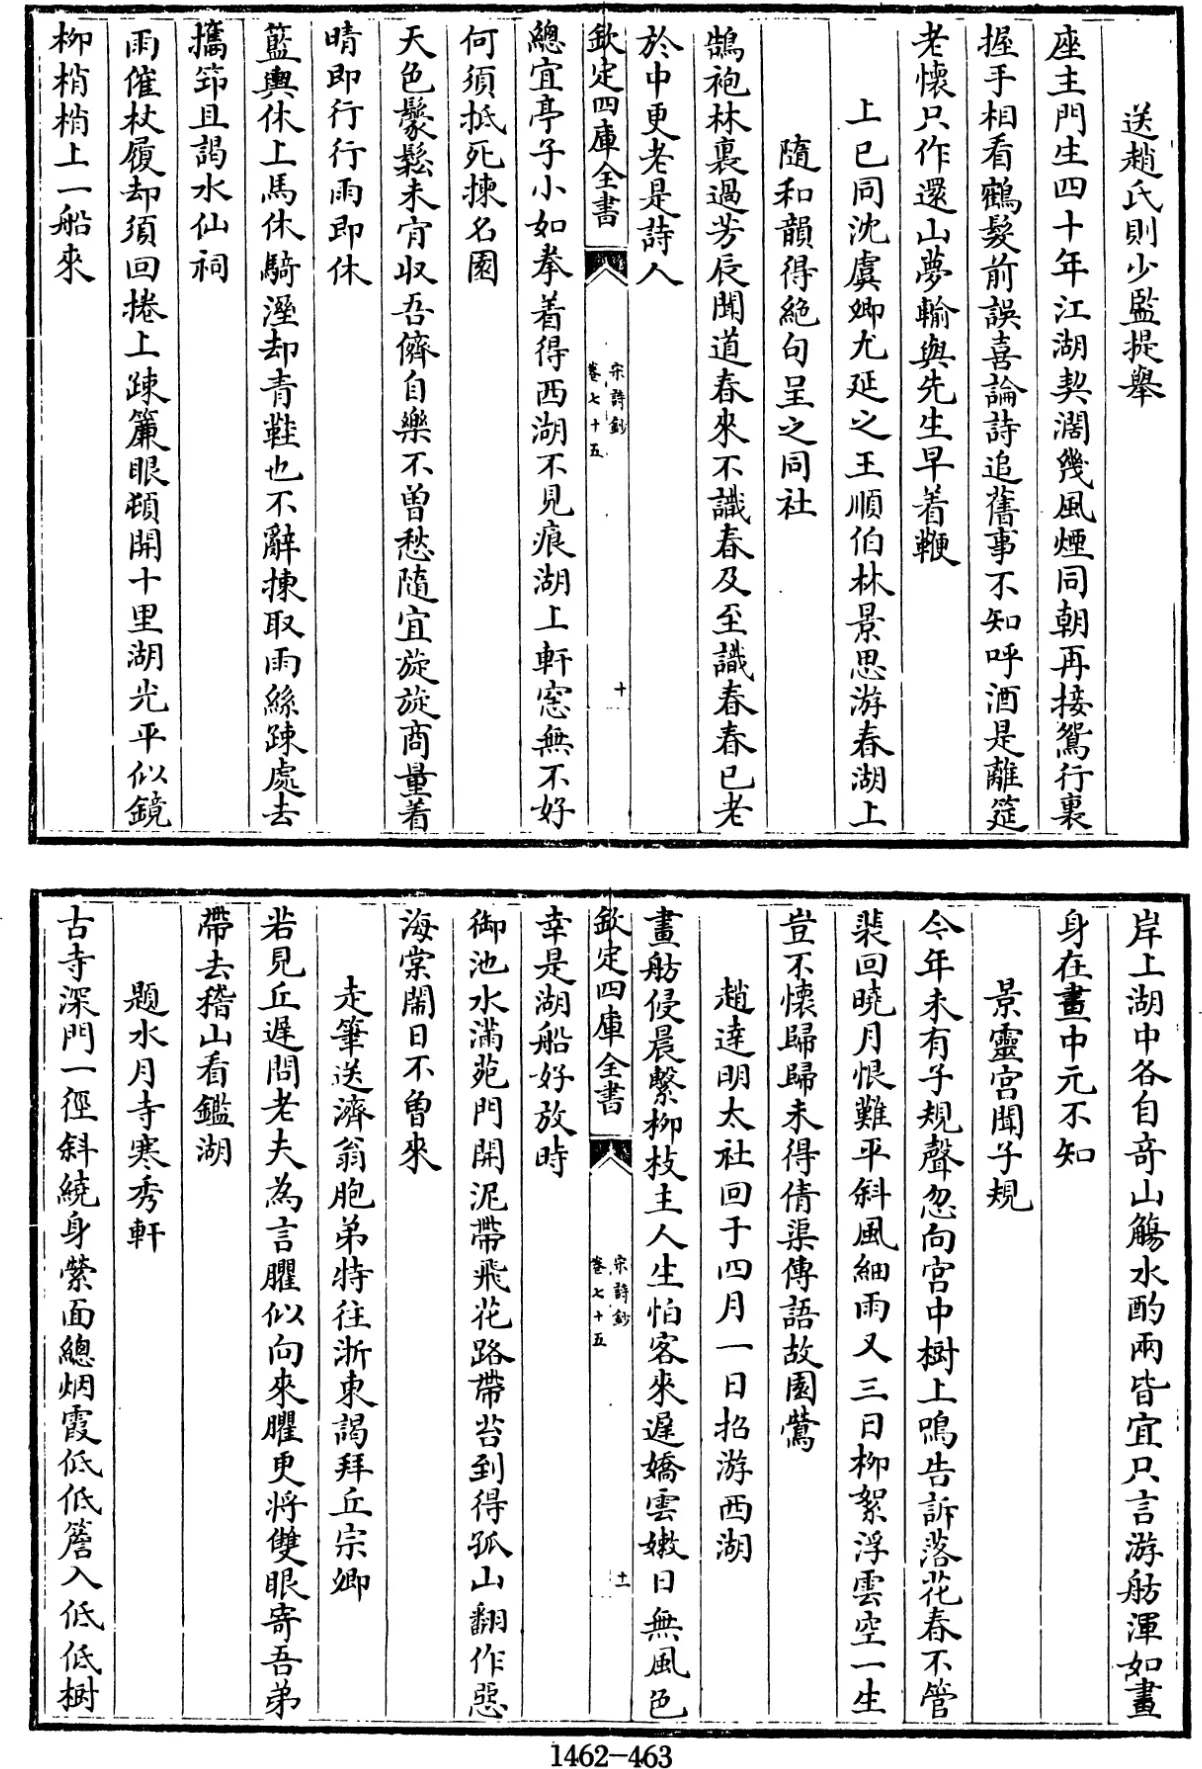 送趙民則少監提舉
座主門生四十年江湖契濶幾風煙同朝再接鴛行裏
握手相看鶴髮前誤喜論詩追舊事不知呼酒是離筵
老懷只作還山夢輸與先生早着鞭
上巳同沈虞卿尤延之王順伯林景思游春湖上
隨和韻得絶句呈之同社
鵠袍林裏過芳辰聞道春來不識春及至識春春已老
於中更老是詩人
欽定四庫全書
宋詩鈔
卷七十五
十
總宜亭子小如拳着得西湖不見痕湖上軒窓無不好
何須抵死揀名園
天色鬅鬆未肎収吾儕自樂不曽愁隨宜旋旋商量着
晴即行行雨即休
籃輿休上馬休騎溼却青鞋也不辭揀取雨絲踈處去
攜筇且謁水仙祠
雨催杖履却須回捲上踈簾眼頓開十里湖光平似鏡
柳梢梢上一船來
岸上湖中各自竒山觴水酌兩皆宜只言游舫渾如畫
身在畫中元不知
景靈宮聞子規
今年未有子規聲忽向宮中樹上鳴告訴落花春不管
裴回曉月恨難平斜風細雨又三日柳絮浮雲空一生
豈不懷歸歸未得倩渠傳語故園鶯
趙達明太社回于四月一日招游西湖
畫舫侵晨繫柳枝主人生怕客來遲嬌雲嫩日無風色
欽定四庫全書
宋詩鈔
卷七十五
十一
幸是湖船好放時
御池水滿苑門開泥帶飛花路帶苔到得孤山翻作惡
海棠閙日不曽來
走筆送濟翁胞弟特往浙東謁拜丘宗卿
若見丘遲問老夫為言臞似向來臞更将雙眼寄吾弟
帶去稽山看鑑湖
題水月寺寒秀軒
古寺深門一徑斜繞身縈面總烟霞低低簷入低低樹
1462-463